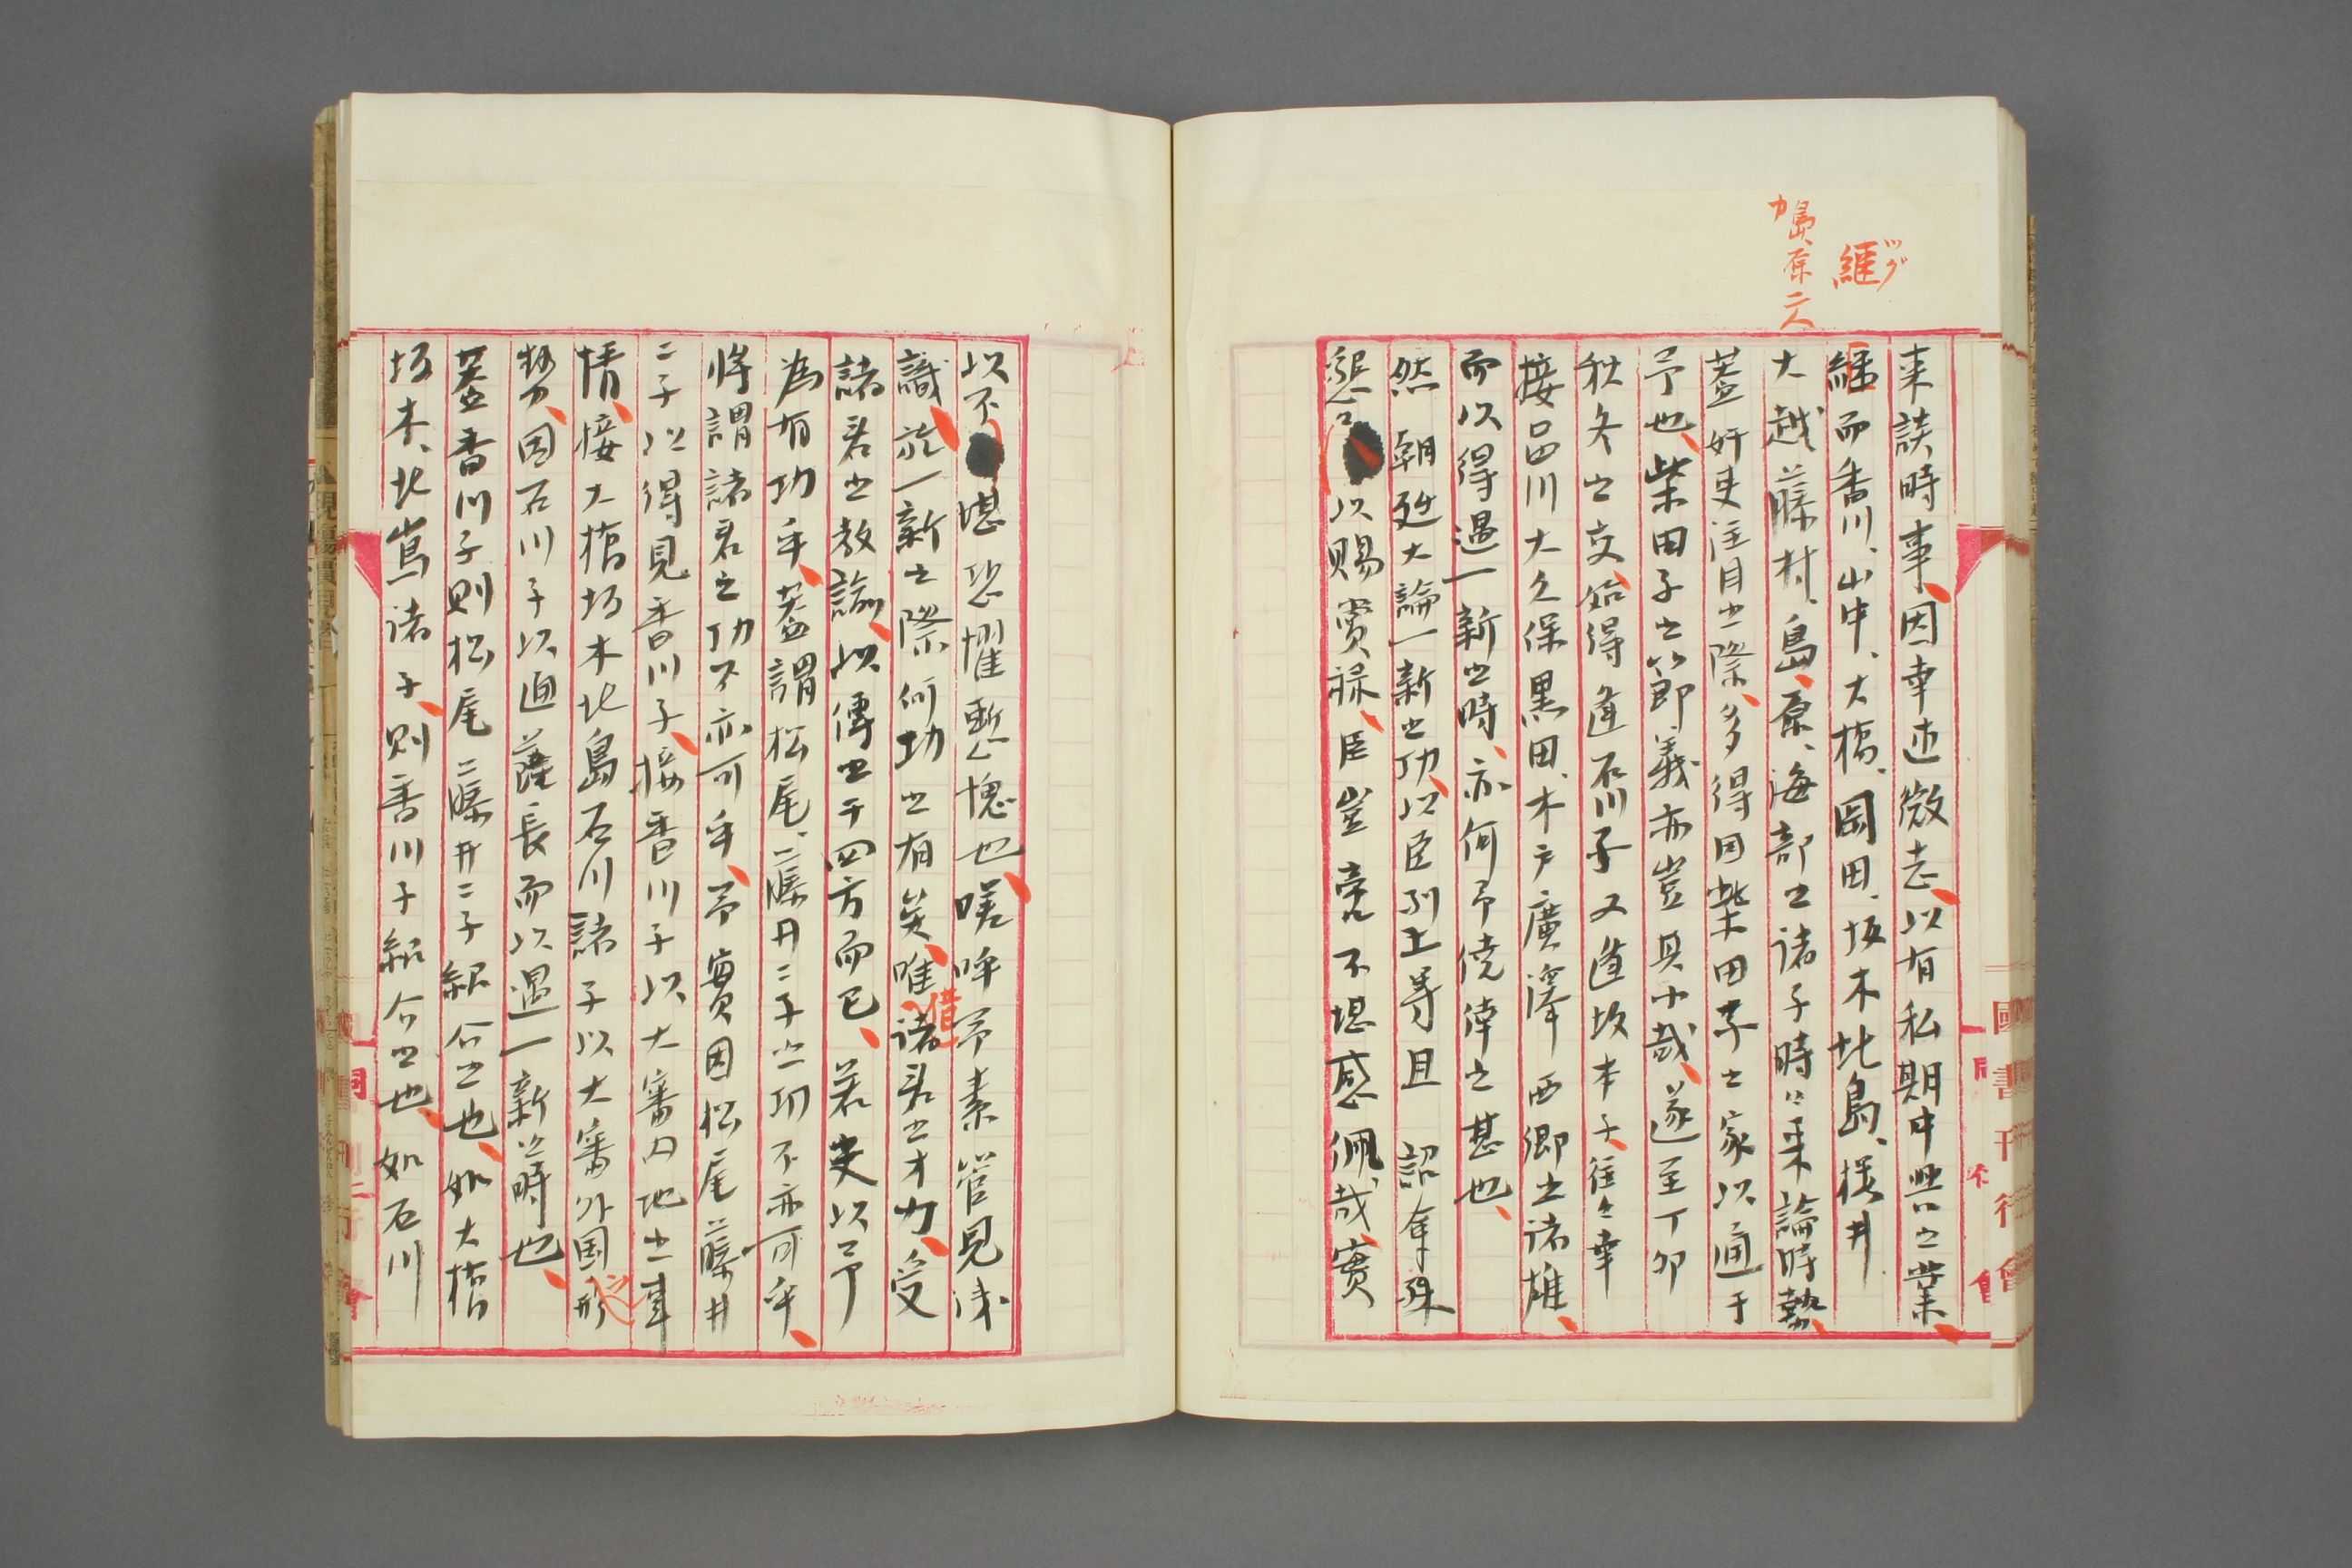 ツグ
継
カ島、原二人
来談時事、因幸述微志、以有私期中興之業、
継而香川、山中、大橋、岡田、坂木北島、桜井
大越、藤村、島、原、海部之諸子時々来論時勢、
蓋奸吏注目之際、多得因柴田子之家以通于
予也、柴田子之節義亦豈具小哉、遂至丁卯
秋冬之交、始得逢石川子又逢坂本子、往々幸
接品川大久保黒田、木戸廣澤西郷之諸雄、
而以得遇一新之時、亦何予僥倖之甚也、
然 朝廷大論一新之功、以臣列上等且 詔奪殊
懇 以賜賞禄、臣豈啻不堪感佩哉、実
以不 堪恐懼慙愧也、嗟呼予素管見浅
識、於一新之際何功之有矣、唯諸君之才力、受
借
諸君之教諭、以傳之于四方而已、若吏以予
為有功乎、蓋謂松尾、二藤井二子之功不亦可乎、
将謂諸君之功不亦可乎、予實因松尾藤井
二子以得見香川子、接香川子以大審内地之事
情、接大橋坂木北島石川諸子以大審外国形
勢、因石川子以通薩長而以遇一新之時也、
蓋香川子則松尾二藤井二子紹介之也、如大橋
坂木、北嶌諸子、則香川子紹介之也、如石川
國書刊行會